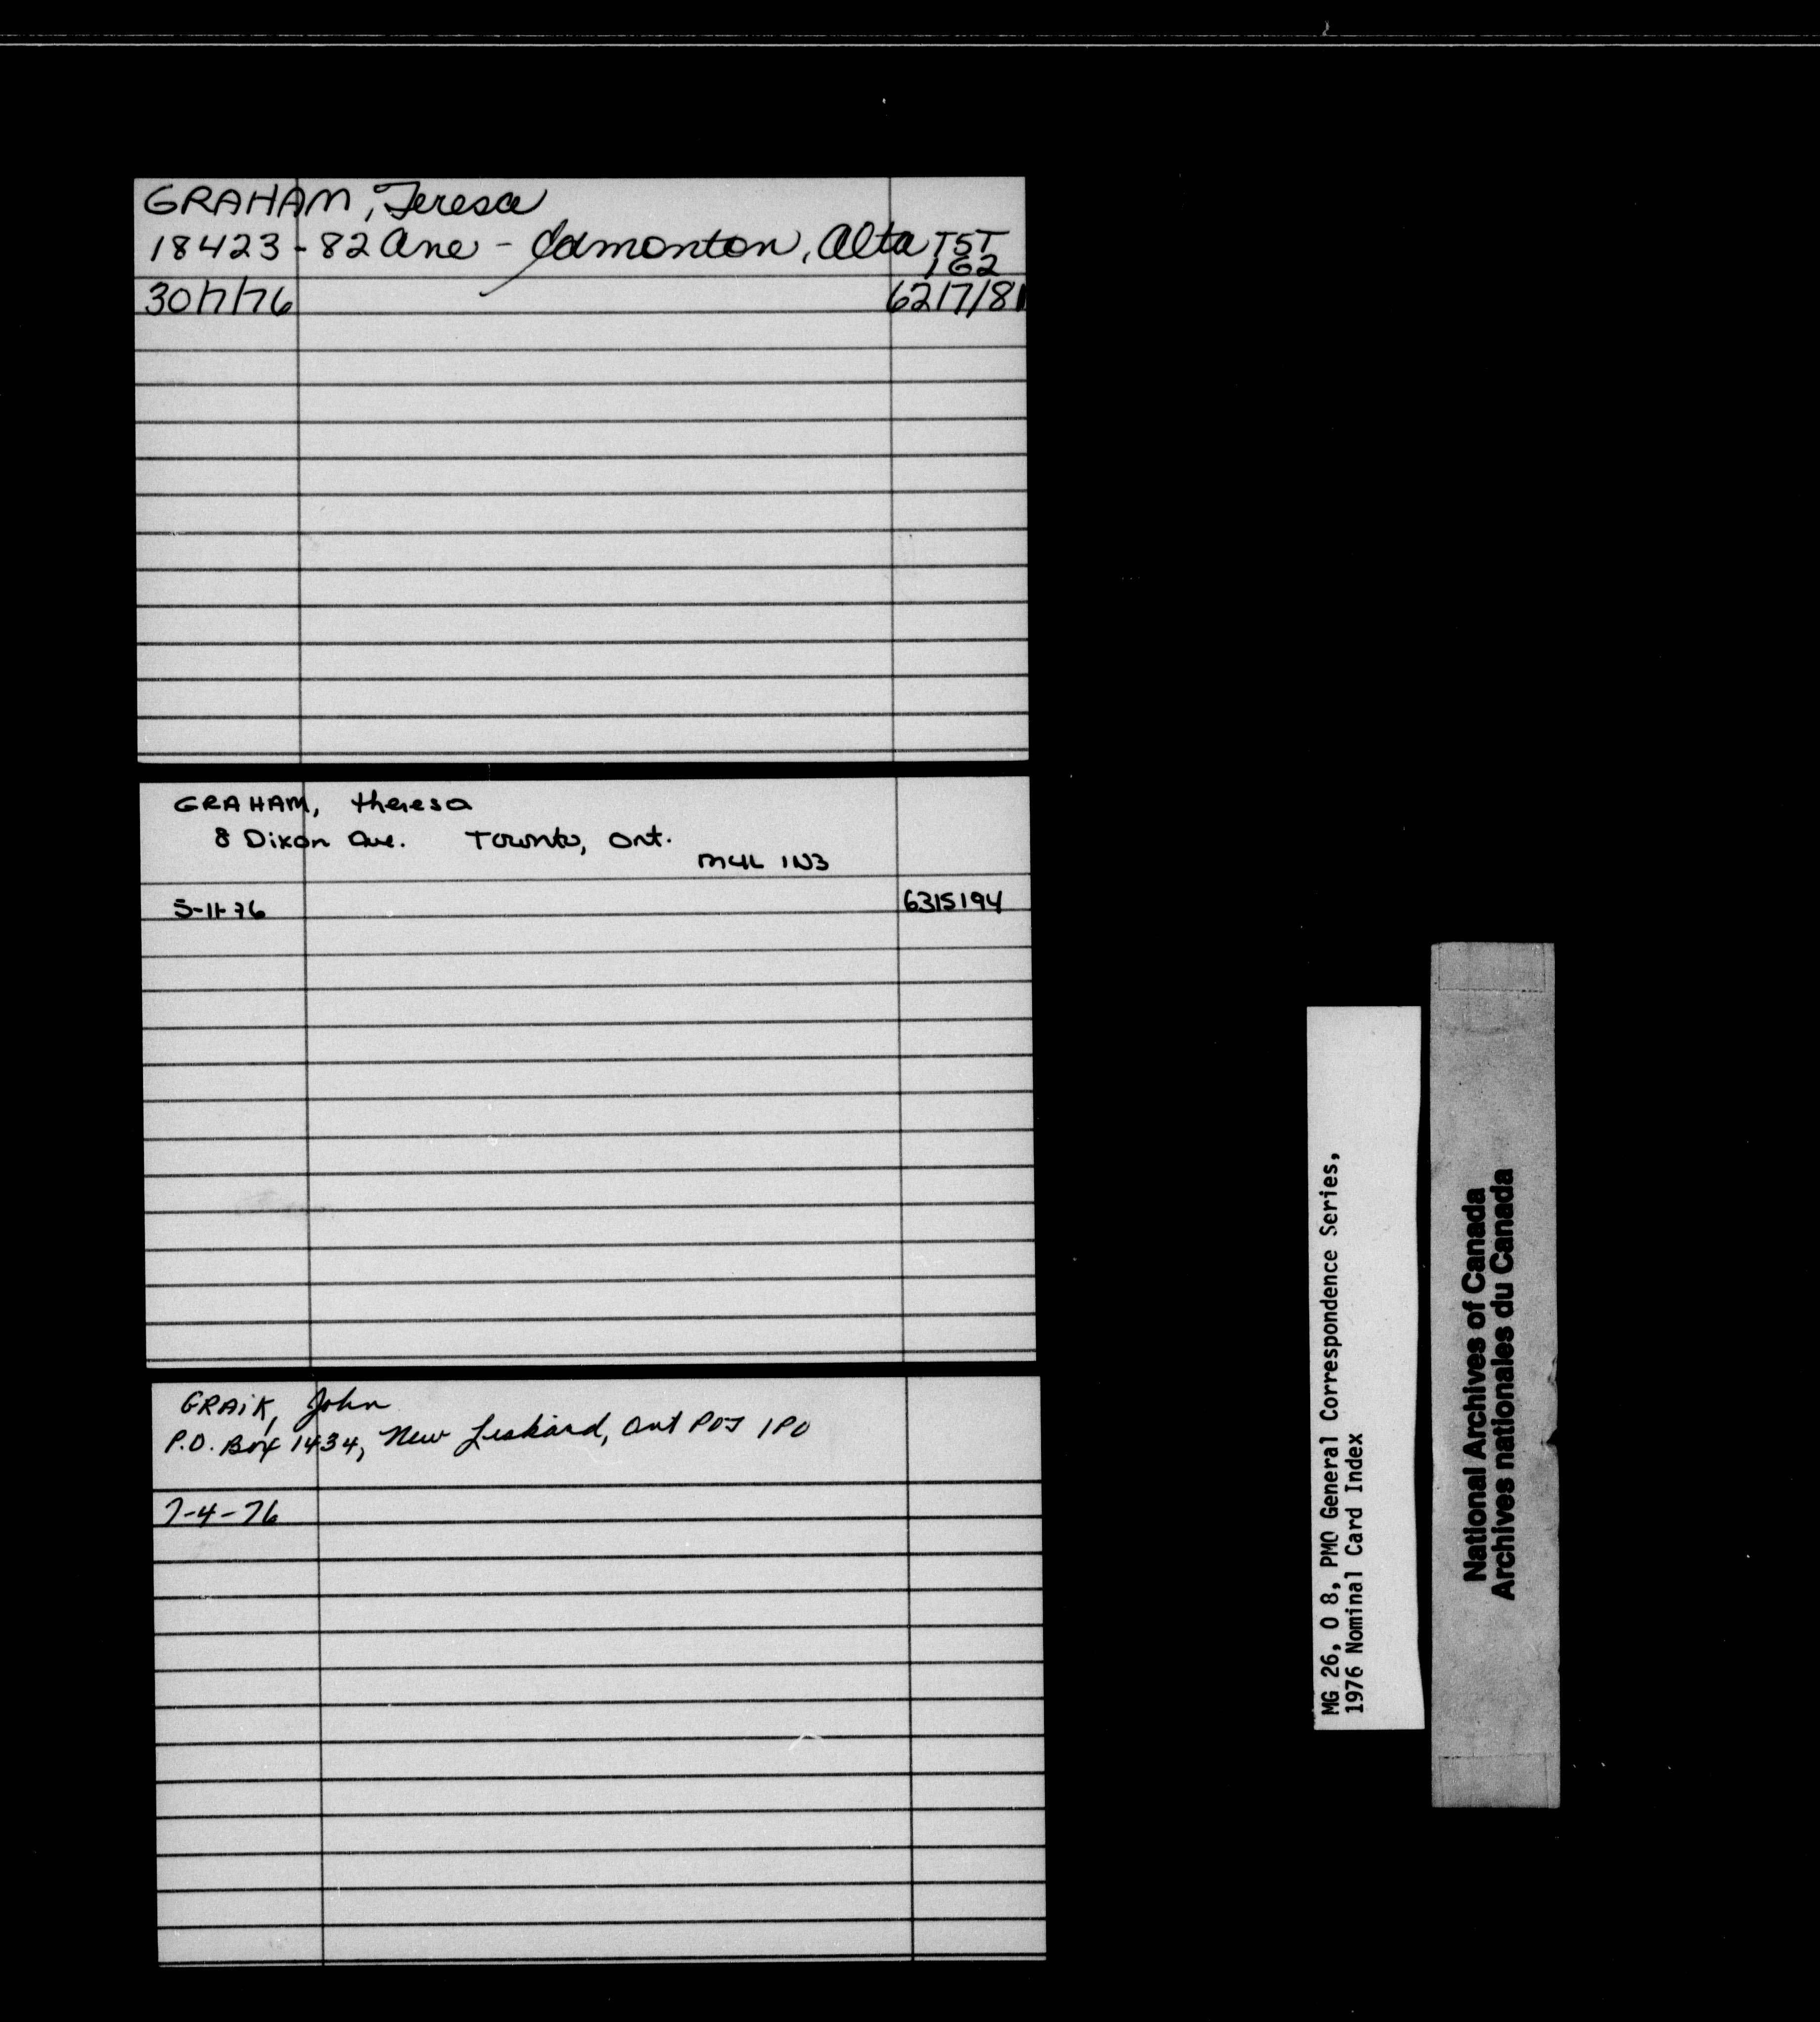 GRAHAM, Teresa
18423 - 82 Ave - Edmonton, Alta T5T
1G2
30/7/76 6217/81
GRAHAM, Theresa
8 Dixon Ave. Toronto, Ont.
M4L 1N3
5-11-76 6315194
GRAIK, John
P.O. Box 1434, New Liskeard, Ont P0J 1P0
7-4-76
MG 26, O 8, PMO General Correspondence Series,
1976 Nominal Card Index
National Archives of Canada
Archives nationales du Canada